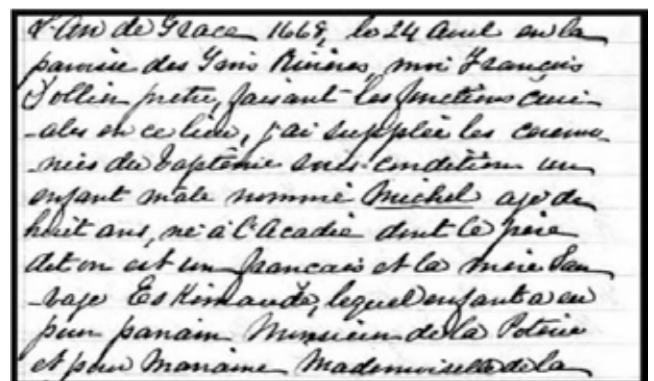 L'An de Grace 1668, le 24 avril en la
paroisse des Trois Rivières, moi François
Follin pretre, faisant les fonctions curi-
-ales en ce lieu, j'ai supplée les ceremo-
-nies du baptême sous condition un
enfant male nommé Michel age de
huit ans, né à l'Acadie dont le père
dit on est un français et la mère Sau
-vage Eskimaude, lequel enfant a eu
pour parrain Monsieur de la Poterie
et pour Maraine Mademoiselle de la